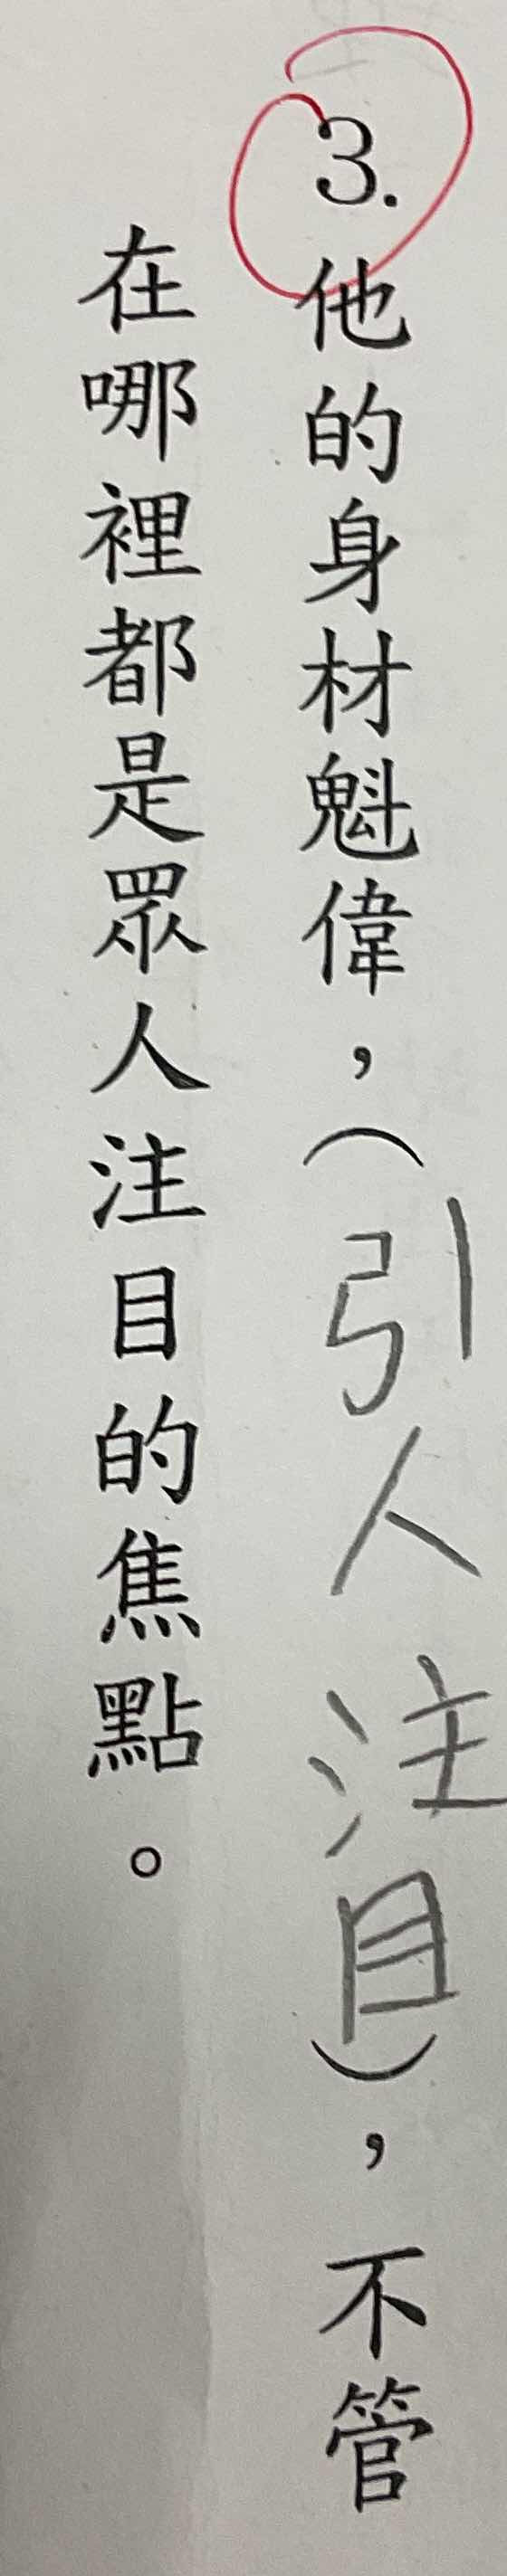 3.他的身材魁偉，（引人注目），不管
在哪裡都是眾人注目的焦點。